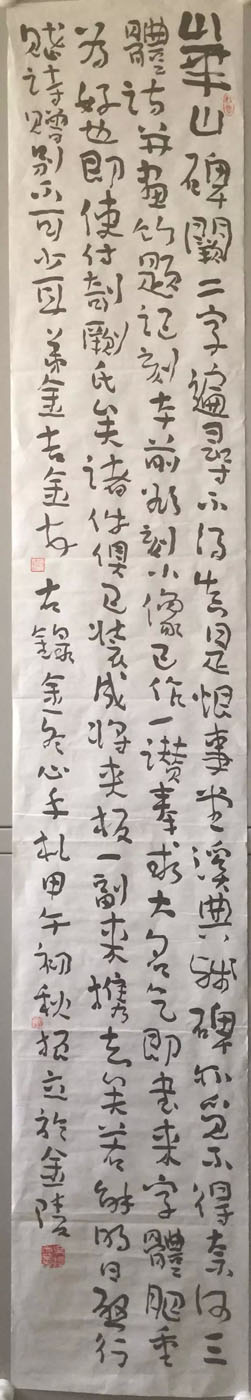 華山碑闕二字遍尋不得真是恨事堂溪典殘碑亦覓不得奈何三
體詩并畫竹題記刻本前所刻小像已作一讚奉求大名乞即書來字體肥重
為好也即使付剞劂氏矣諸件俱已裝成將夾板一副來携去矣若錐明日啟行
賦詩贈別不可少耳弟金吉金頓
右錄金冬心手札甲午初秋振立於金陵